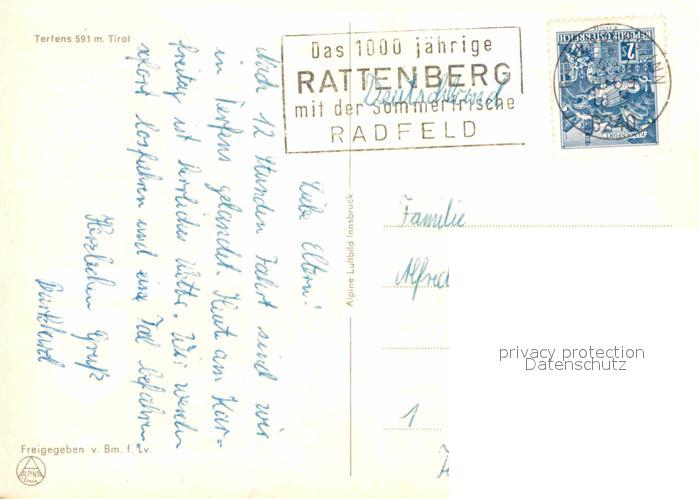 Terfens 591 m. Tirol
Das 1000 jährige
RATTENBERG
mit der Sommerfrische
RADFELD
REPUBLIK ÖSTERREICH
2S
6240
Deutschland
Liebe Eltern!
Nach 12 Stunden Fahrt sind wir
in Terfens gelandet. Heut am Kar=
freitag ist herrliches Wetter. Wir werden
sofort losfahren und eine Tal befahren.
Herzlichen Gruß
Burkhard
Alpine Luftbild Innsbruck
Familie
Alfred
1
privacy protection
Datenschutz
Freigegeben v. Bm. f. Lv.
ALPINE